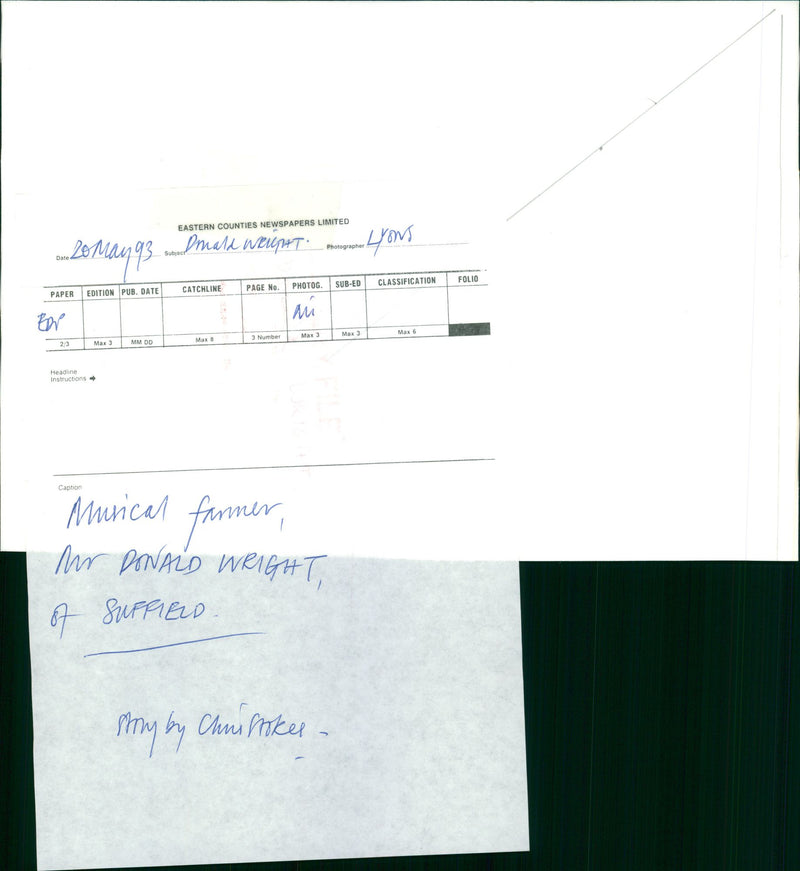 EASTERN COUNTIES NEWSPAPERS LIMITED
Date 20 May 93 Subject Donald WRIGHT. Photographer Lyons
PAPER EDITION PUB. DATE CATCHLINE PAGE No. PHOTOG. SUB-ED CLASSIFICATION FOLIO
EDP
2/3 Max 3 MM DD Max 8 3 Number Max 3 Max 3 Max 6
Headline
Instructions ➔
Caption
Musical farmer,
Mr DONALD WRIGHT,
of SUFFIELD.
story by Chris Stokes -